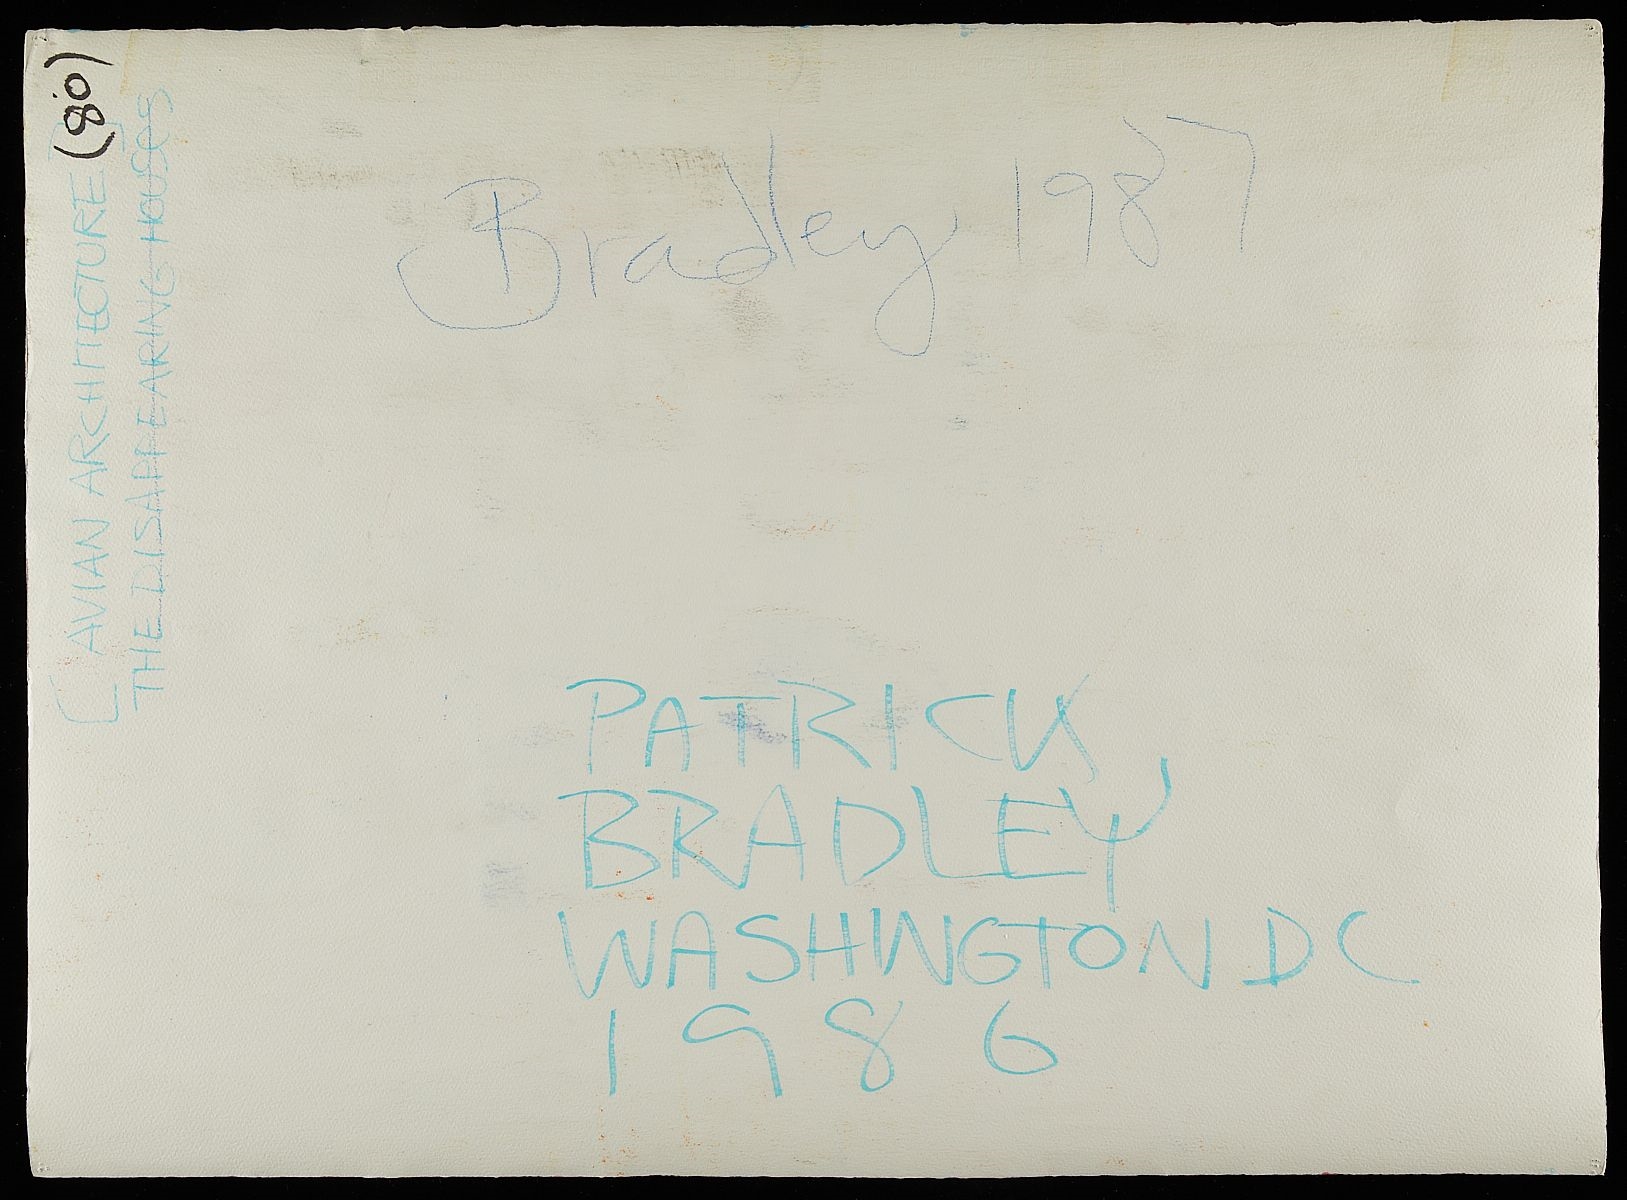 (80)
[AVIAN ARCHITECTURE]
THE DISAPPEARING HOUSES
Bradley 1987
PATRICK
BRADLEY
WASHINGTON DC
1986